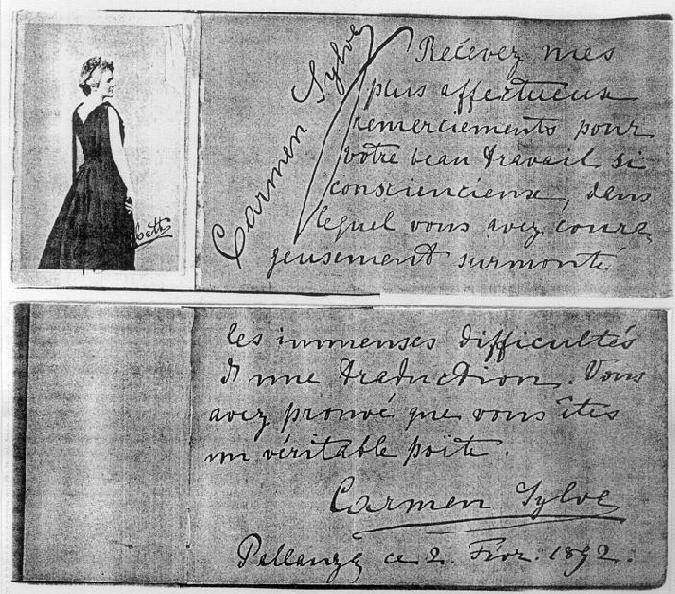 Carmen Sylva
Recevez mes
plus affectueux
remerciements pour
votre beau travail si
consciencieux, dans
lequel vous avez coura
geusement surmonté
les immenses difficultés
d'une traduction. Vous
avez prouvé que vous êtes
un véritable poëte.
Carmen Sylva
Pallanza ce 2. Févr. 1892.